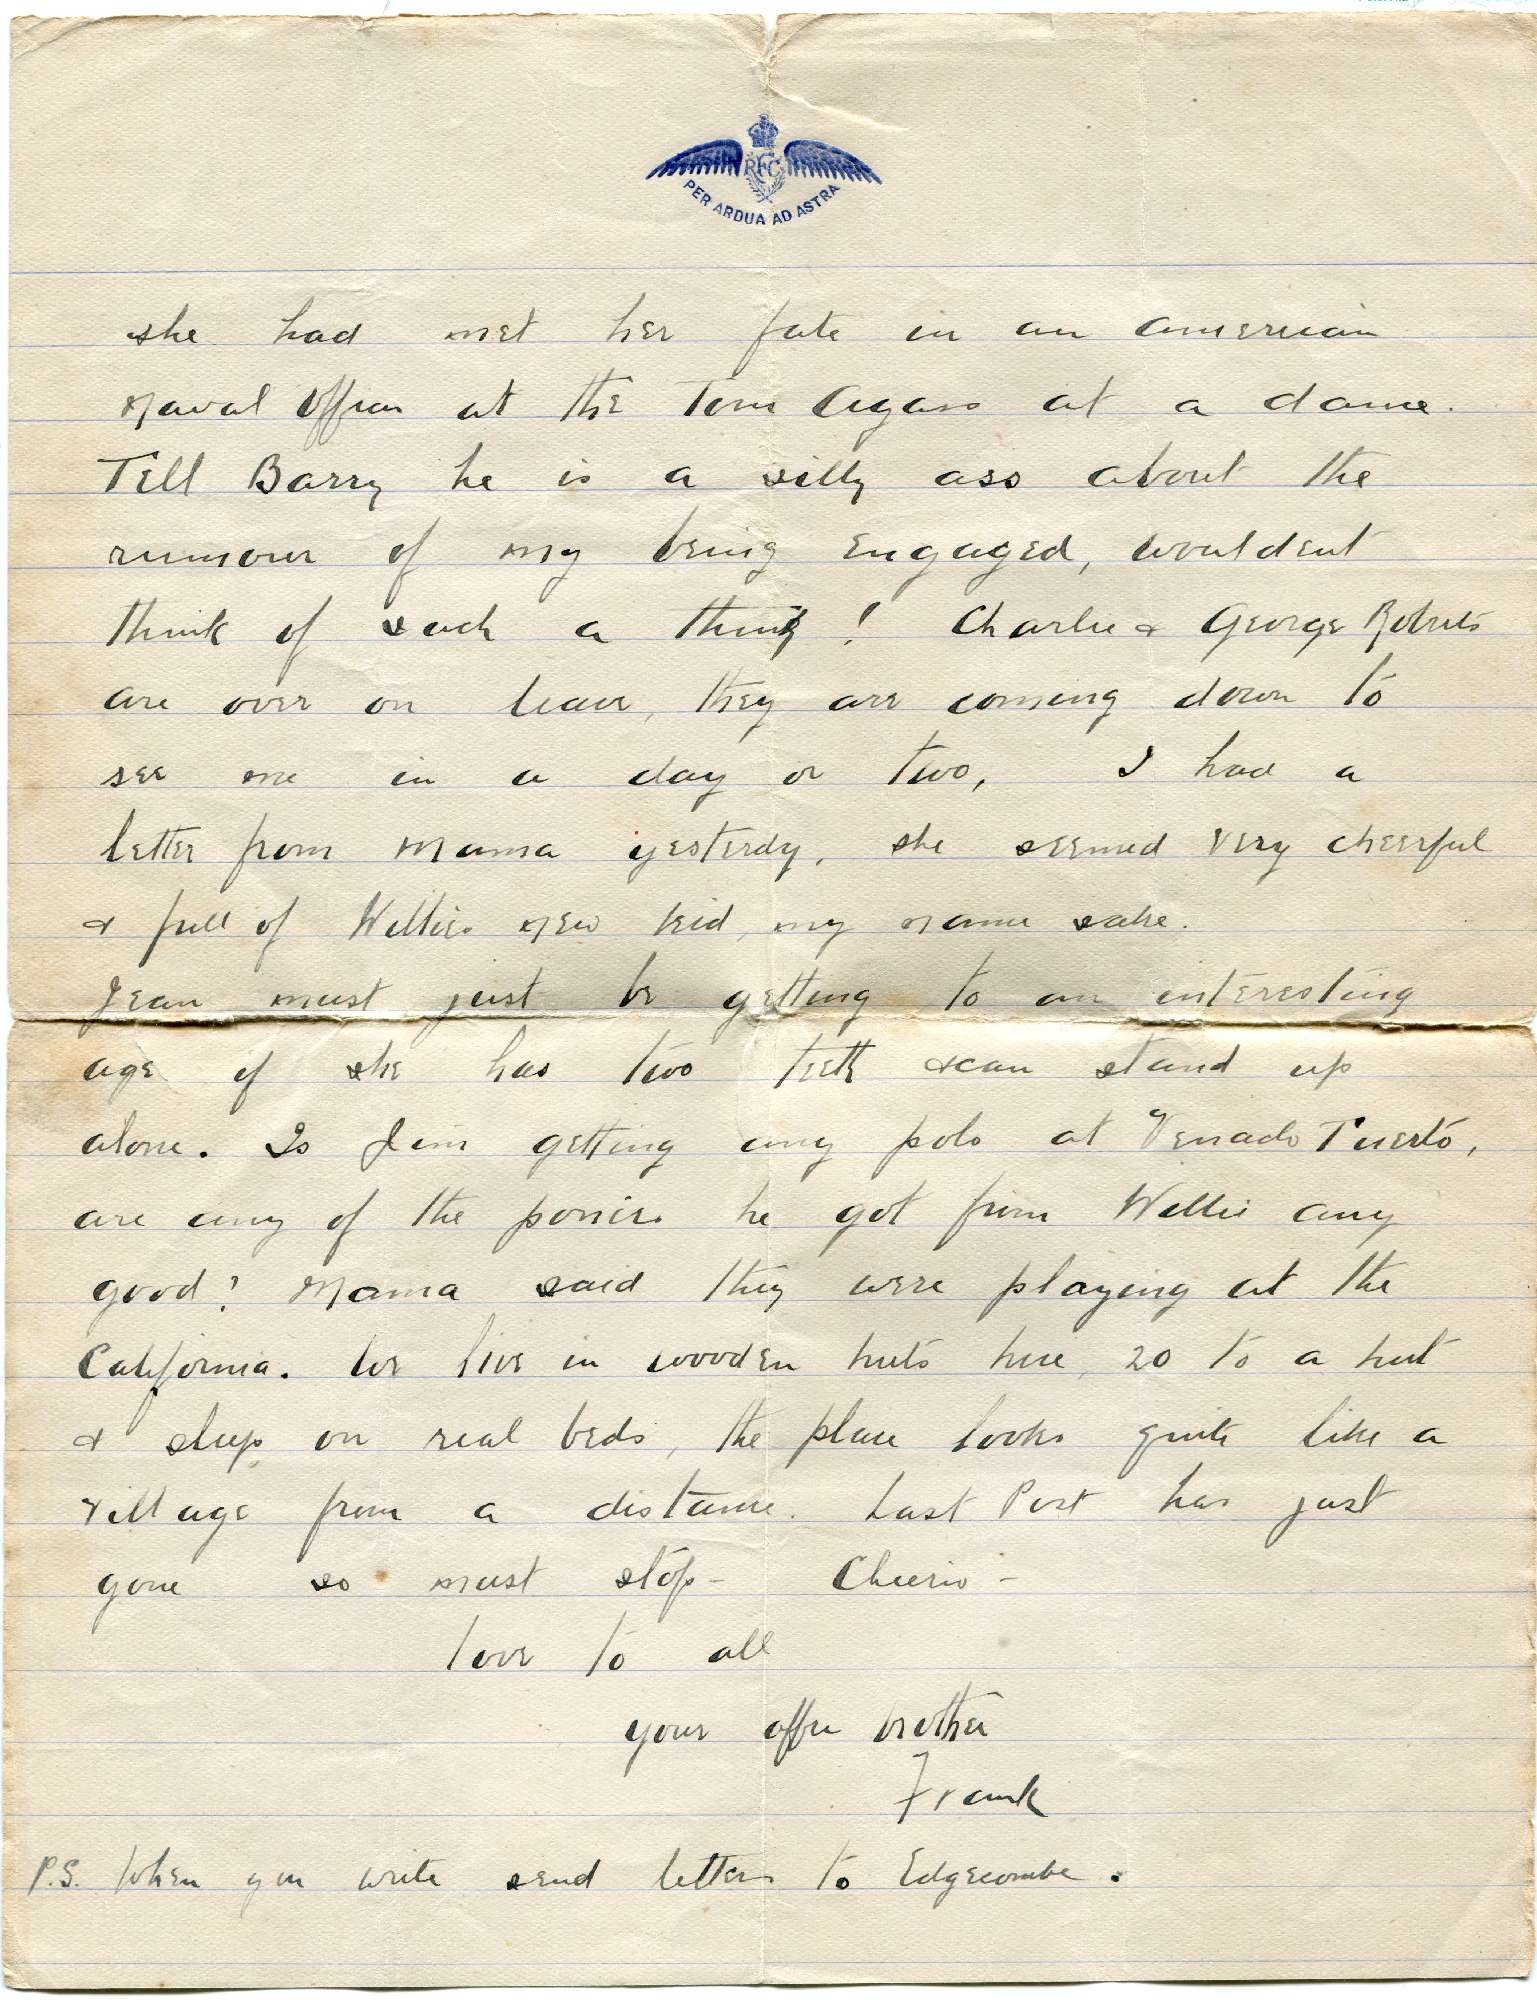 RFC
PER ARDUA AD ASTRA
she had met her fate in an American
Naval Officer at the Tom Agars at a dance.
Tell Barry he is a silly ass about the
rumour of my being engaged, wouldent
think of such a thing! Charlie & George Roberts
are over on leave, they are coming down to
see me in a day or two, I had a
letter from Mama yesterdy, she seemed very cheerful
& full of Willies new kid, my name sake.
Jean must just be getting to an interesting
age if she has two teeth & can stand up
alone. Is Jim getting any polo at Venado Tuerto,
are any of the ponies he got from Willie any
good? Mama said they were playing at the
California. We live in wooden huts here, 20 to a hut
& sleep on real beds, the place looks quite like a
village from a distance. Last Post has just
gone so must stop - Cheerio -
Love to all
your affec brother
Frank
P.S. When you write send letters to Edgecombe.